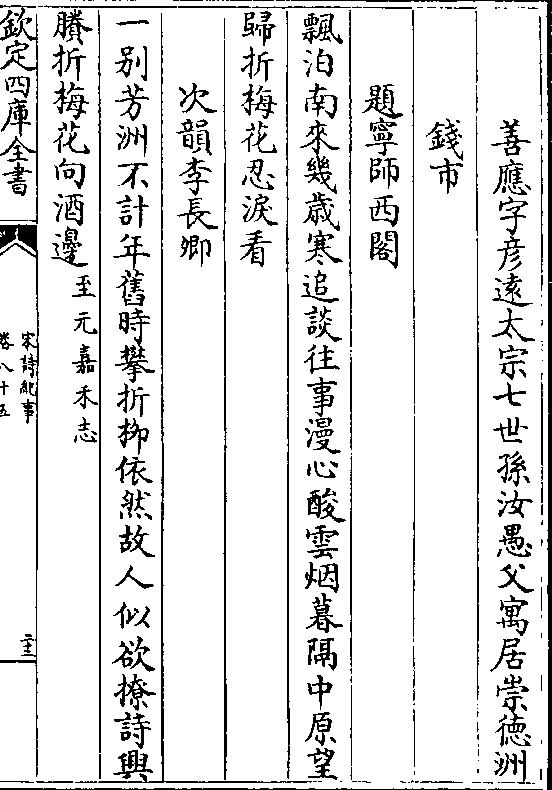 善應字彦遠太宗七世孫汝愚父寓居崇徳洲
錢市
題寧師西閣
飄泊南來幾歲寒追談往事漫心酸雲烟暮隔中原望
歸折梅花忍淚看
次韻李長卿
一别芳洲不計年舊時攀折栁依然故人似欲撩詩興
賸折梅花向酒邊至元嘉禾志
欽定四庫全書
宋詩紀事
卷八十五